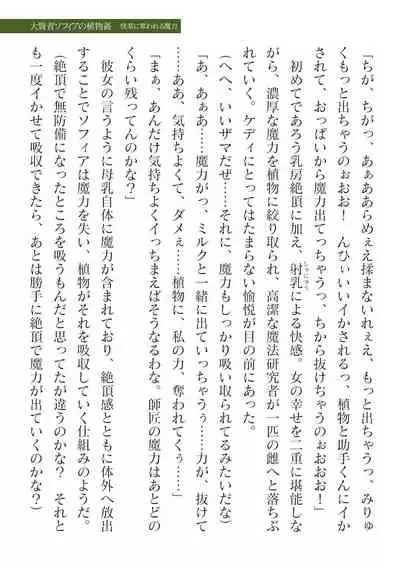 大賢者ソフィアの植物姦　快楽に奪われる魔力
「ちが、ちがっ、あぁああらめぇえ揉まないれぇえ、もっと出ちゃうっ、みりゅ
くもっと出ちゃうのぉおお！　んひぃいいイかされるっ、植物と助手くんにイか
されて、おっぱいから魔力出てっちゃうっ、ちから抜けちゃうのぉおおお！」
　初めてであろう乳房絶頂に加え、射乳による快感。女の幸せを二重に堪能しな
がら、濃厚な魔力を植物に絞り取られ、高潔な魔法研究者が一匹の雌へと落ちぶ
れていく。ケディにとってはたまらない愉悦が目の前にあった。
（へへ、いいザマだぜ……それに、魔力もしっかり吸い取られてるみたいだな）
「あ、あぁあ……魔力がっ、ミルクと一緒に出ていっちゃうぅ……力が、抜けて
……ああ、気持ちよくて、ダメぇ……植物に、私の力、奪われてくぅ……」
「まぁ、あんだけ気持ちよくイっちまえばそうなるわな。師匠の魔力はあとどの
くらい残ってんのかな？」
　彼女の言うように母乳自体に魔力が含まれており、絶頂感とともに体外へ放出
することでソフィアは魔力を失い、植物がそれを吸収していく仕組みのようだ。
（絶頂で無防備になったところを吸うもんだと思ってたが違うのかな？　それと
も一度イかせて吸収できたら、あとは勝手に絶頂で魔力が出ていくのかな？）